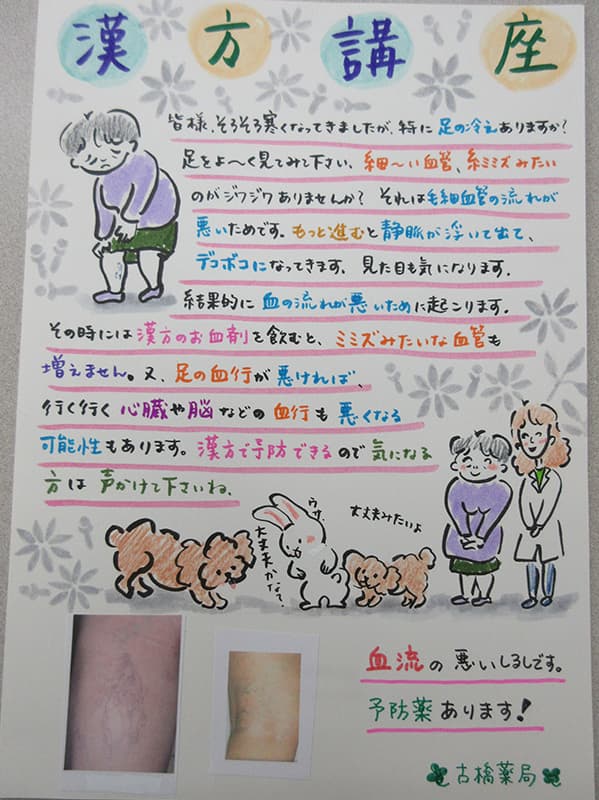 漢方講座
皆様、そろそろ寒くなってきましたが、特に足の冷えありますか?
足をよ〜く見てみて下さい、細〜い血管、糸ミミズみたい
のがジワジワありませんか? それは毛細血管の流れが
悪いためです。もっと進むと静脈が浮いて出て、
デコボコになってきます、見た目も気になります。
結果的に血の流れが悪いために起こります。
その時には漢方のお血剤を飲むと、ミミズみたいな血管も
増えません。又、足の血行が悪ければ、
行く行く心臓や脳などの血行も悪くなる
可能性もあります。漢方で予防できるので気になる
方は声かけて下さいね、
ウサ
丈夫かな〜?
大丈夫みたいよ
血流の悪いしるしです。
予防薬あります!
古橋薬局